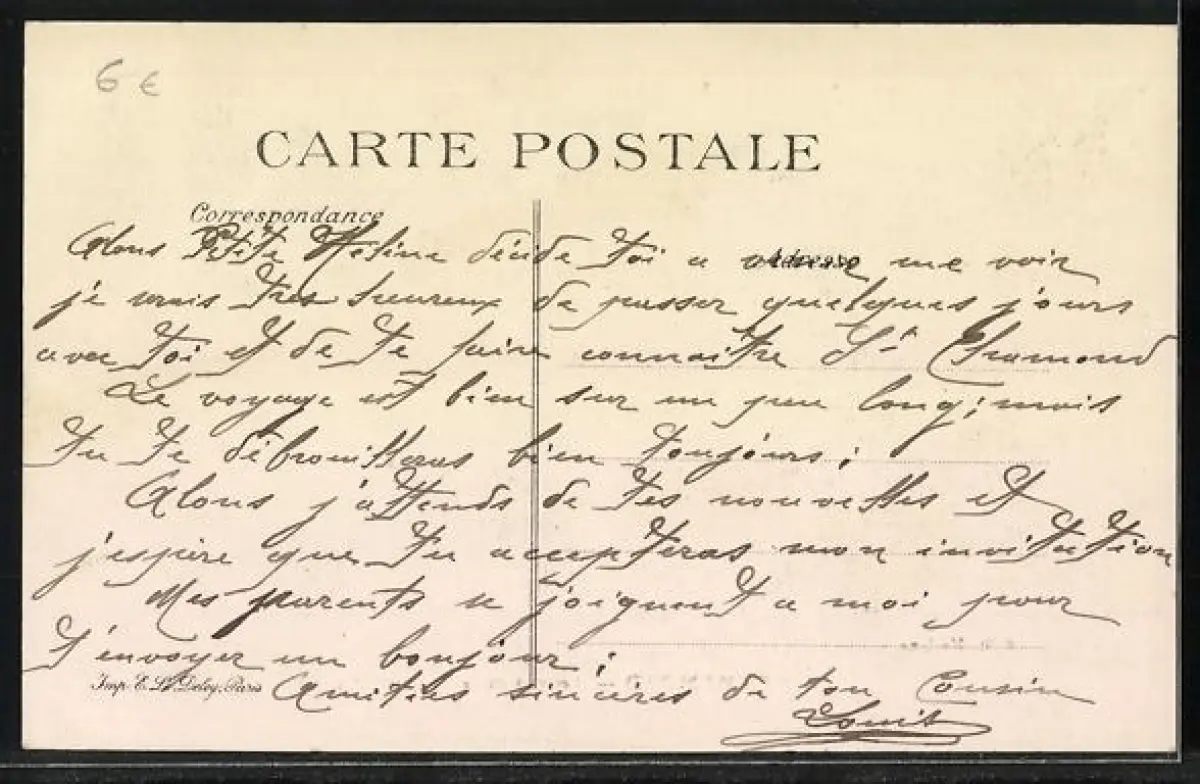 6 €
CARTE POSTALE
Correspondance
Adresse
Alons Petite Hélène décide toi a venir me voir
je serais très heureux de passer quelques jours
avec toi et de te faire connaitre St Chamond
Le voyage est bien sur un peu long; mais
tu te débrouilleras bien toujours;
Alons j'attends de tes nouvelles et
j'espère que tu accepteras mon invitation
Mes parents se joignent a moi pour
t'envoyer un bonjour;
Imp. E. Le Deley, Paris
Amitiés sincères de ton Cousin
Louis